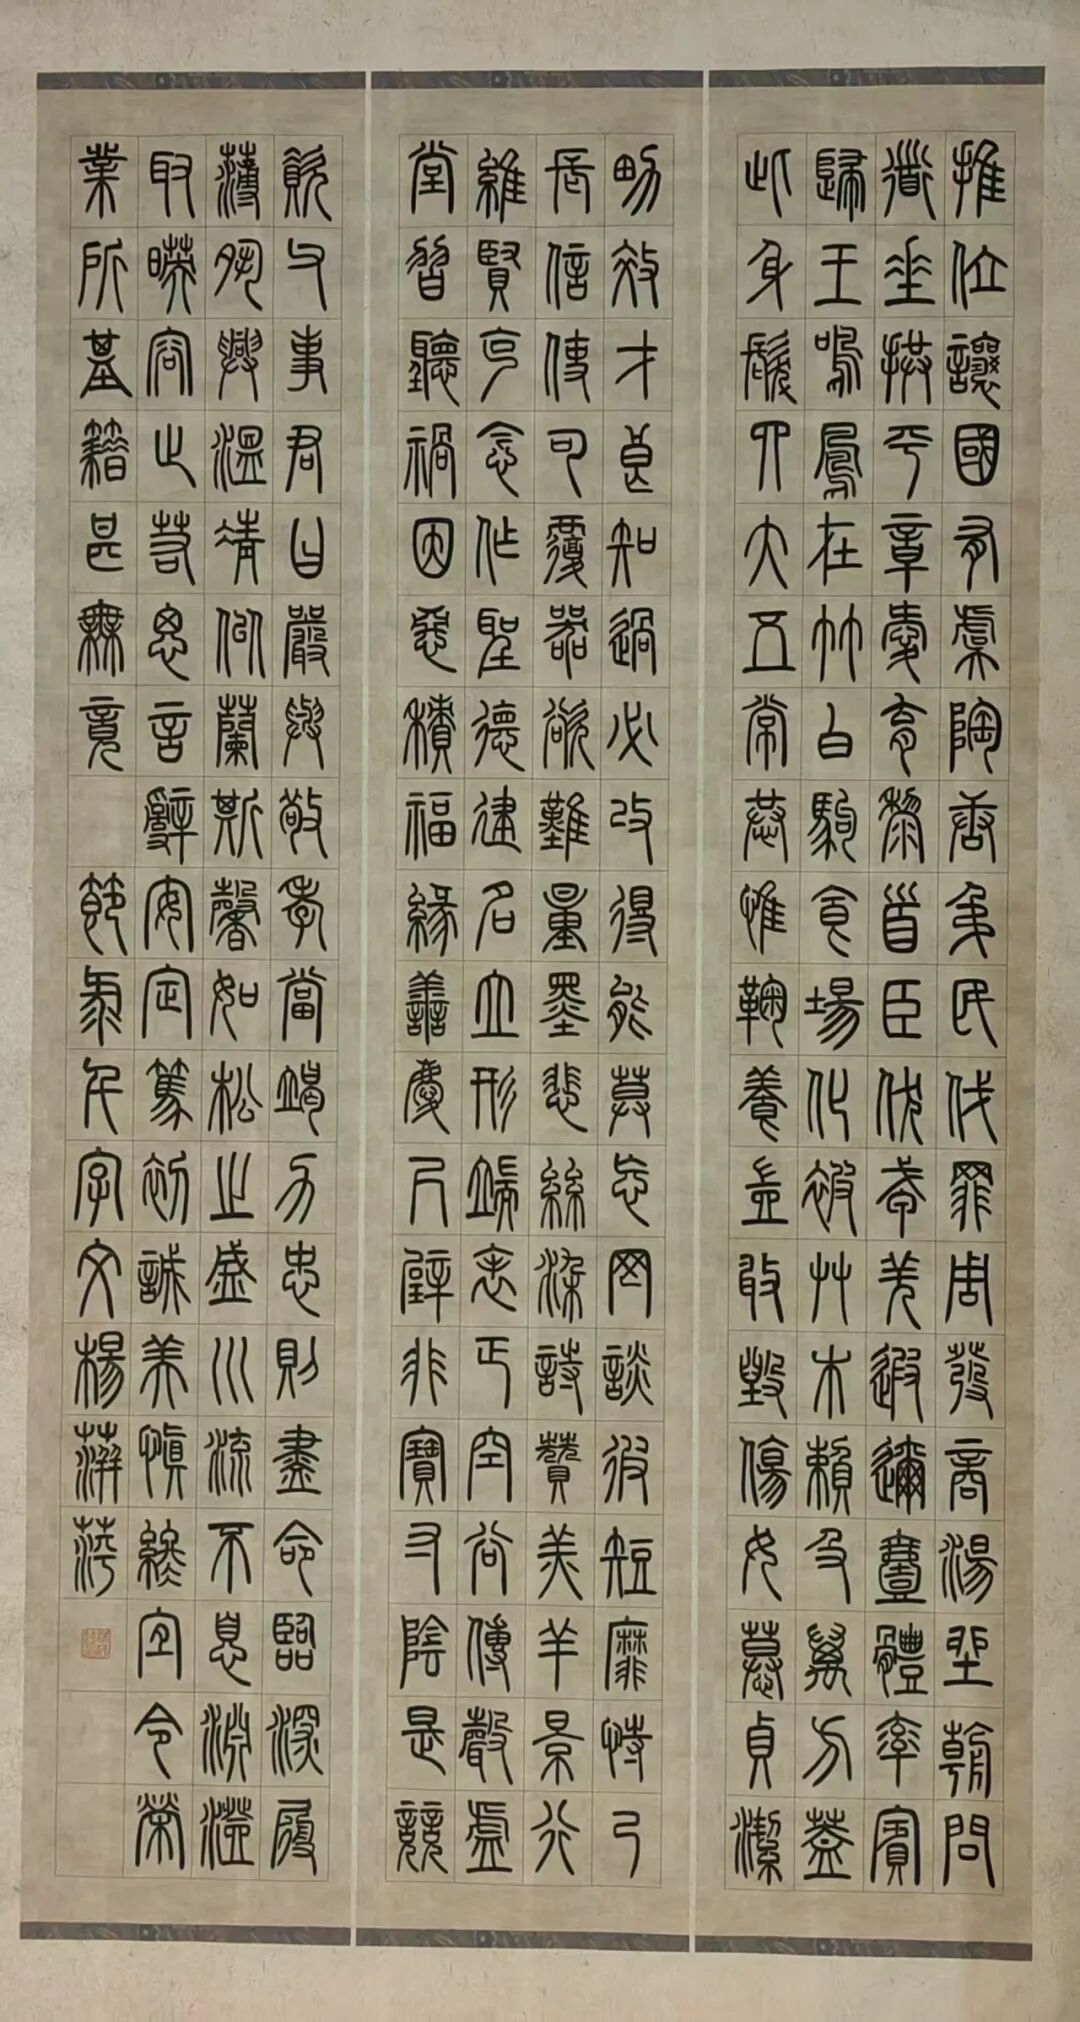 推位讓國有虞陶唐弔民伐罪周發商湯坐朝問
道垂拱平章愛育黎首臣伏戎羌遐邇壹體率賓
歸王鳴鳳在竹白駒食場化被艸木賴及萬方蓋
此身髮四大五常恭惟鞠養豈敢毀傷女慕貞潔
男效才良知過必改得能莫忘罔談彼短靡恃己
長信使可覆器欲難量墨悲絲染詩贊羔羊景行
維賢克念作聖德建名立形端表正空谷傳聲虛
堂習聽禍因惡積福緣善慶尺璧非寶寸陰是競
資父事君曰嚴與敬孝當竭力忠則盡命臨深履
薄夙興溫凊似蘭斯馨如松之盛川流不息淵澄
取暎容止若思言辭安定篤初誠美慎終宜令榮
業所基籍甚無竟 節彔千字文楊